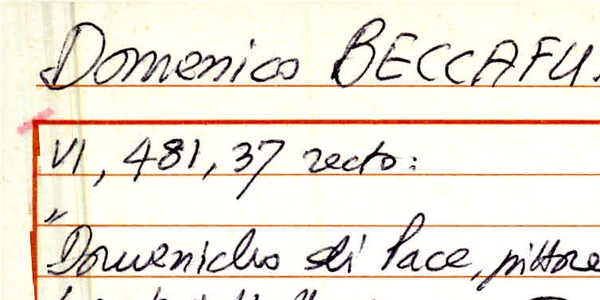 Domenico BECCAFU
VI, 481, 37 recto:
"Domenicho di Pace, pittore